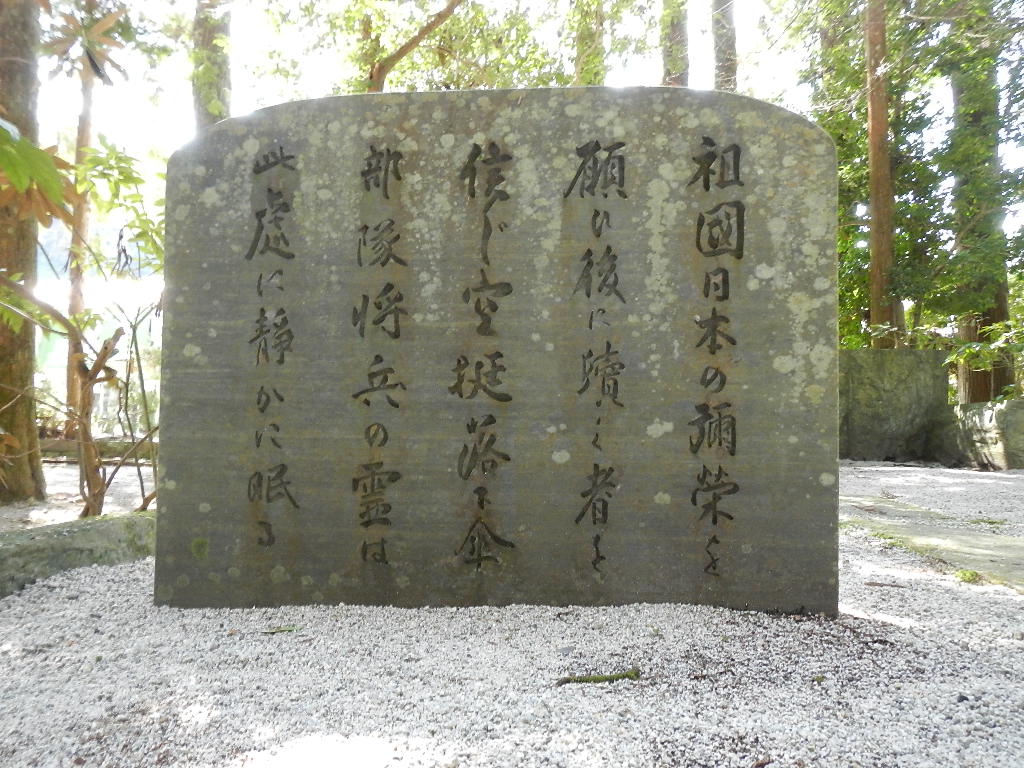 祖國日本の彌榮を
願ひ後に續く者を
信じ空挺落下傘
部隊将兵の霊は
此處に静かに眠る